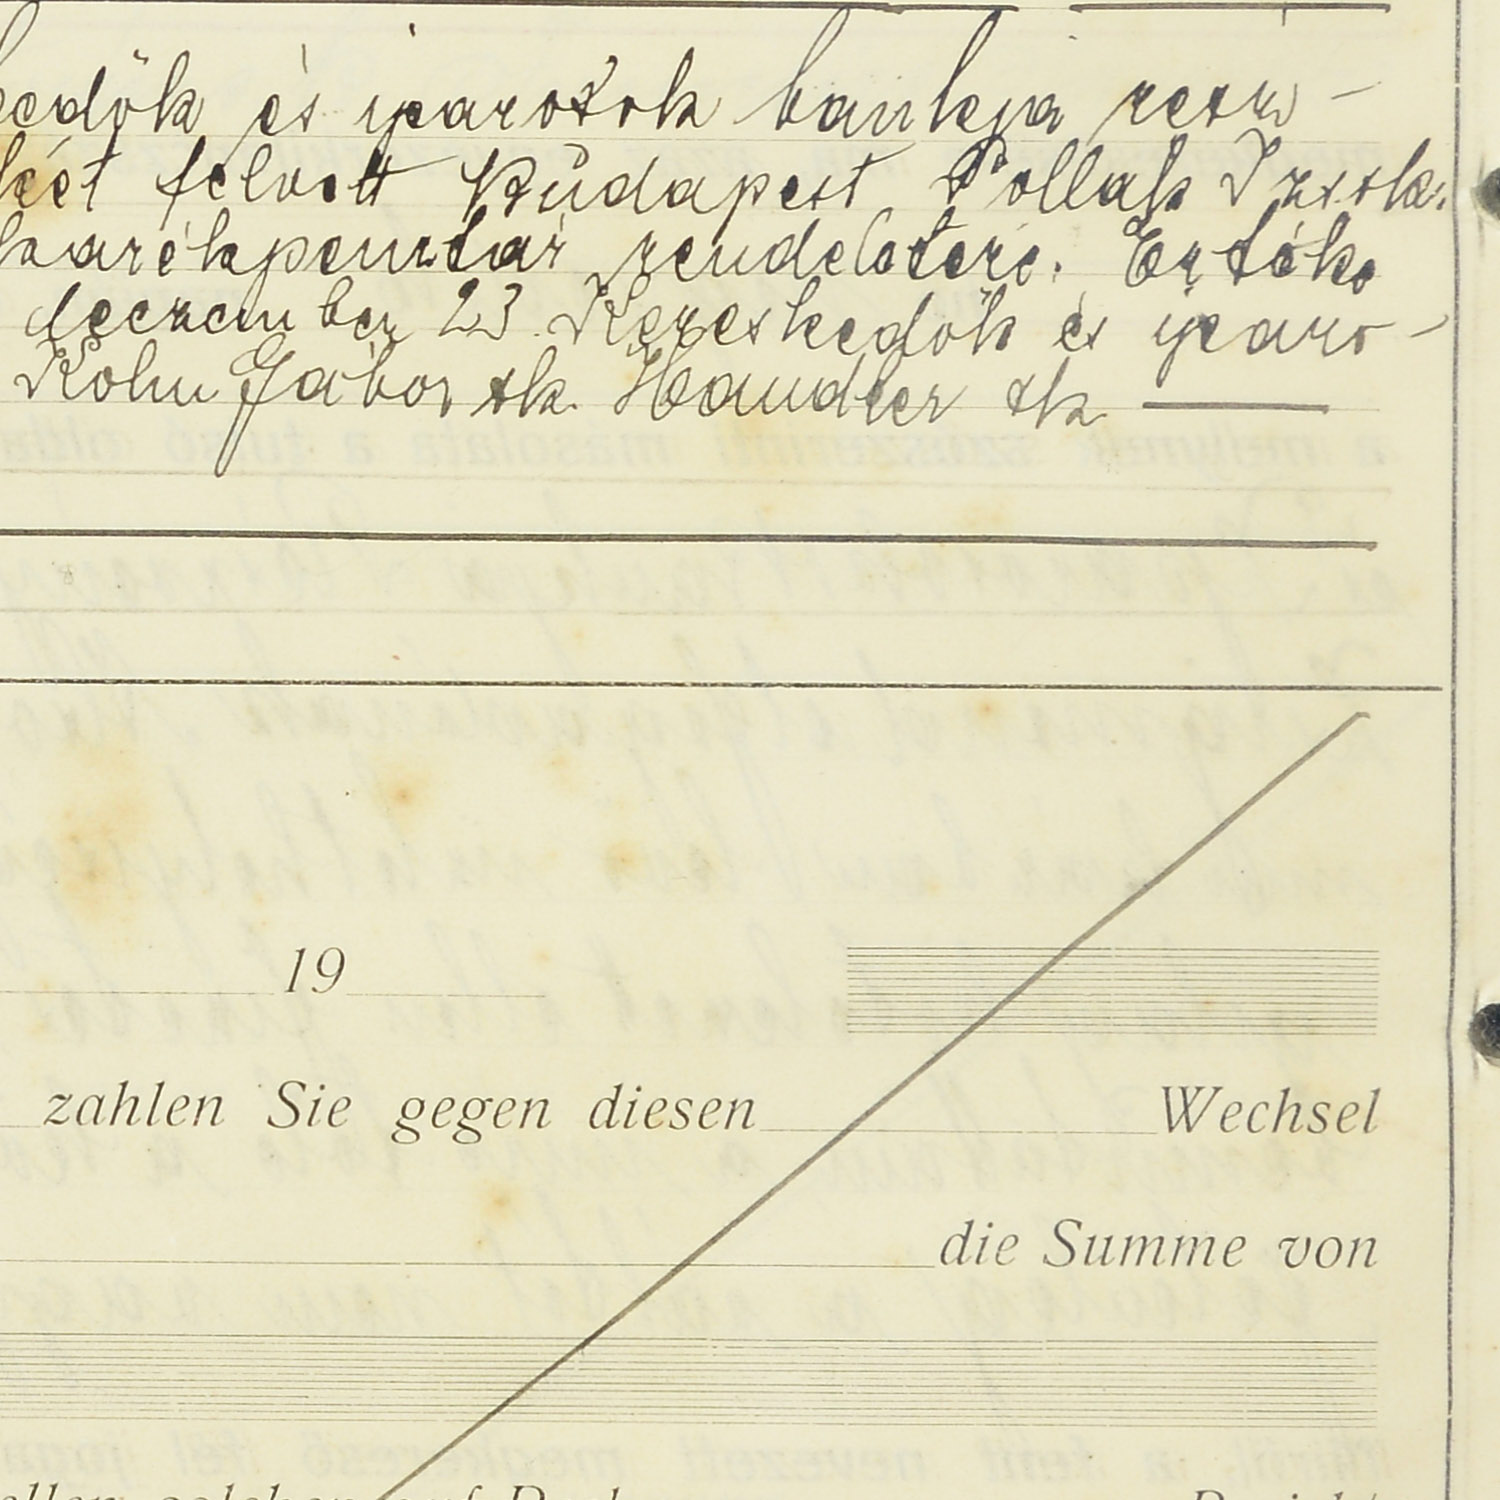 kedők és iparosok bankja rész-
két felvett Budapest Pollak Izsák
takarékpénztár rendeletére. Értéke
deczember 23. Kereskedők és iparo-
Kohn Gábor sk. Handler sk
19
zahlen Sie gegen diesen Wechsel
die Summe von